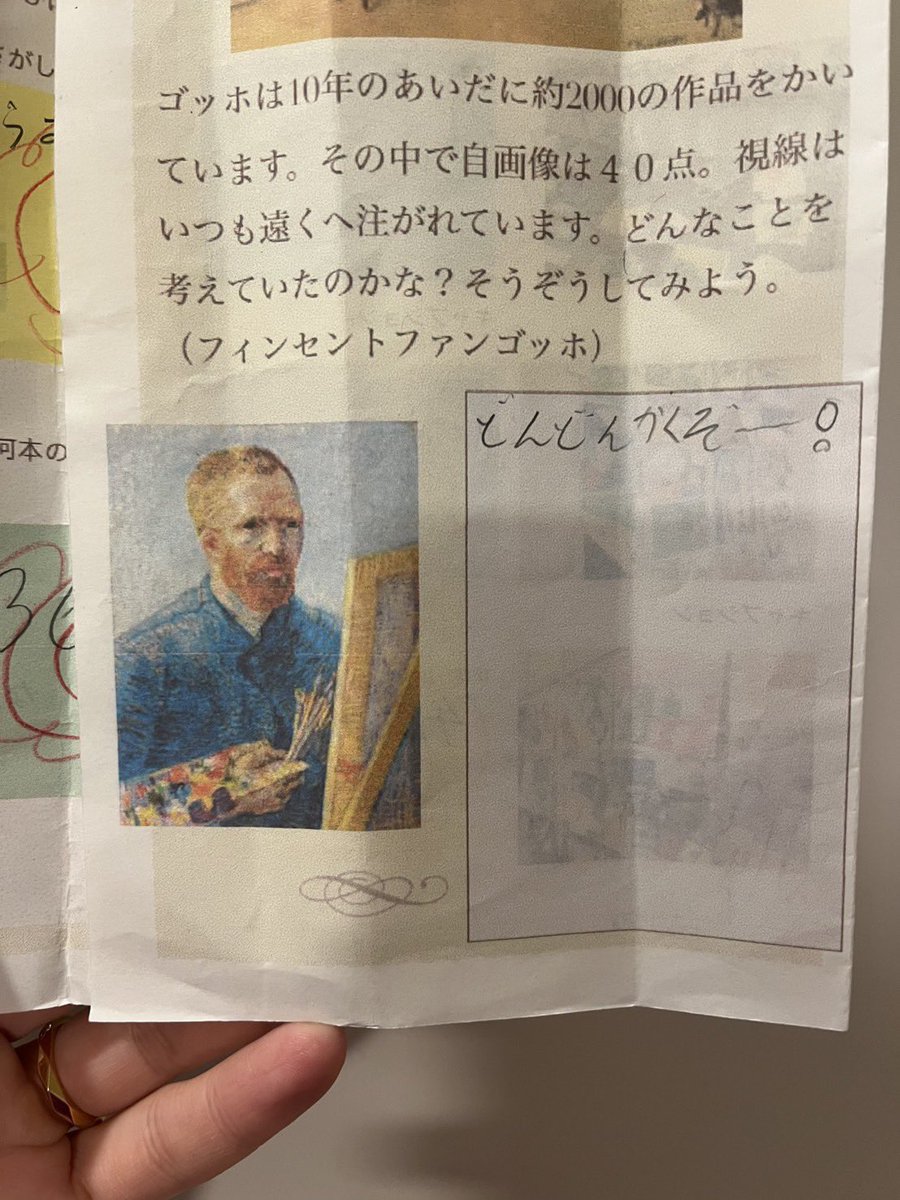 ゴッホは10年のあいだに約2000の作品をかい
ています。その中で自画像は４０点。視線は
いつも遠くへ注がれています。どんなことを
考えていたのかな？そうぞうしてみよう。
（フィンセントファンゴッホ）
どんどんかくぞー！
がし
河本の
キャプション